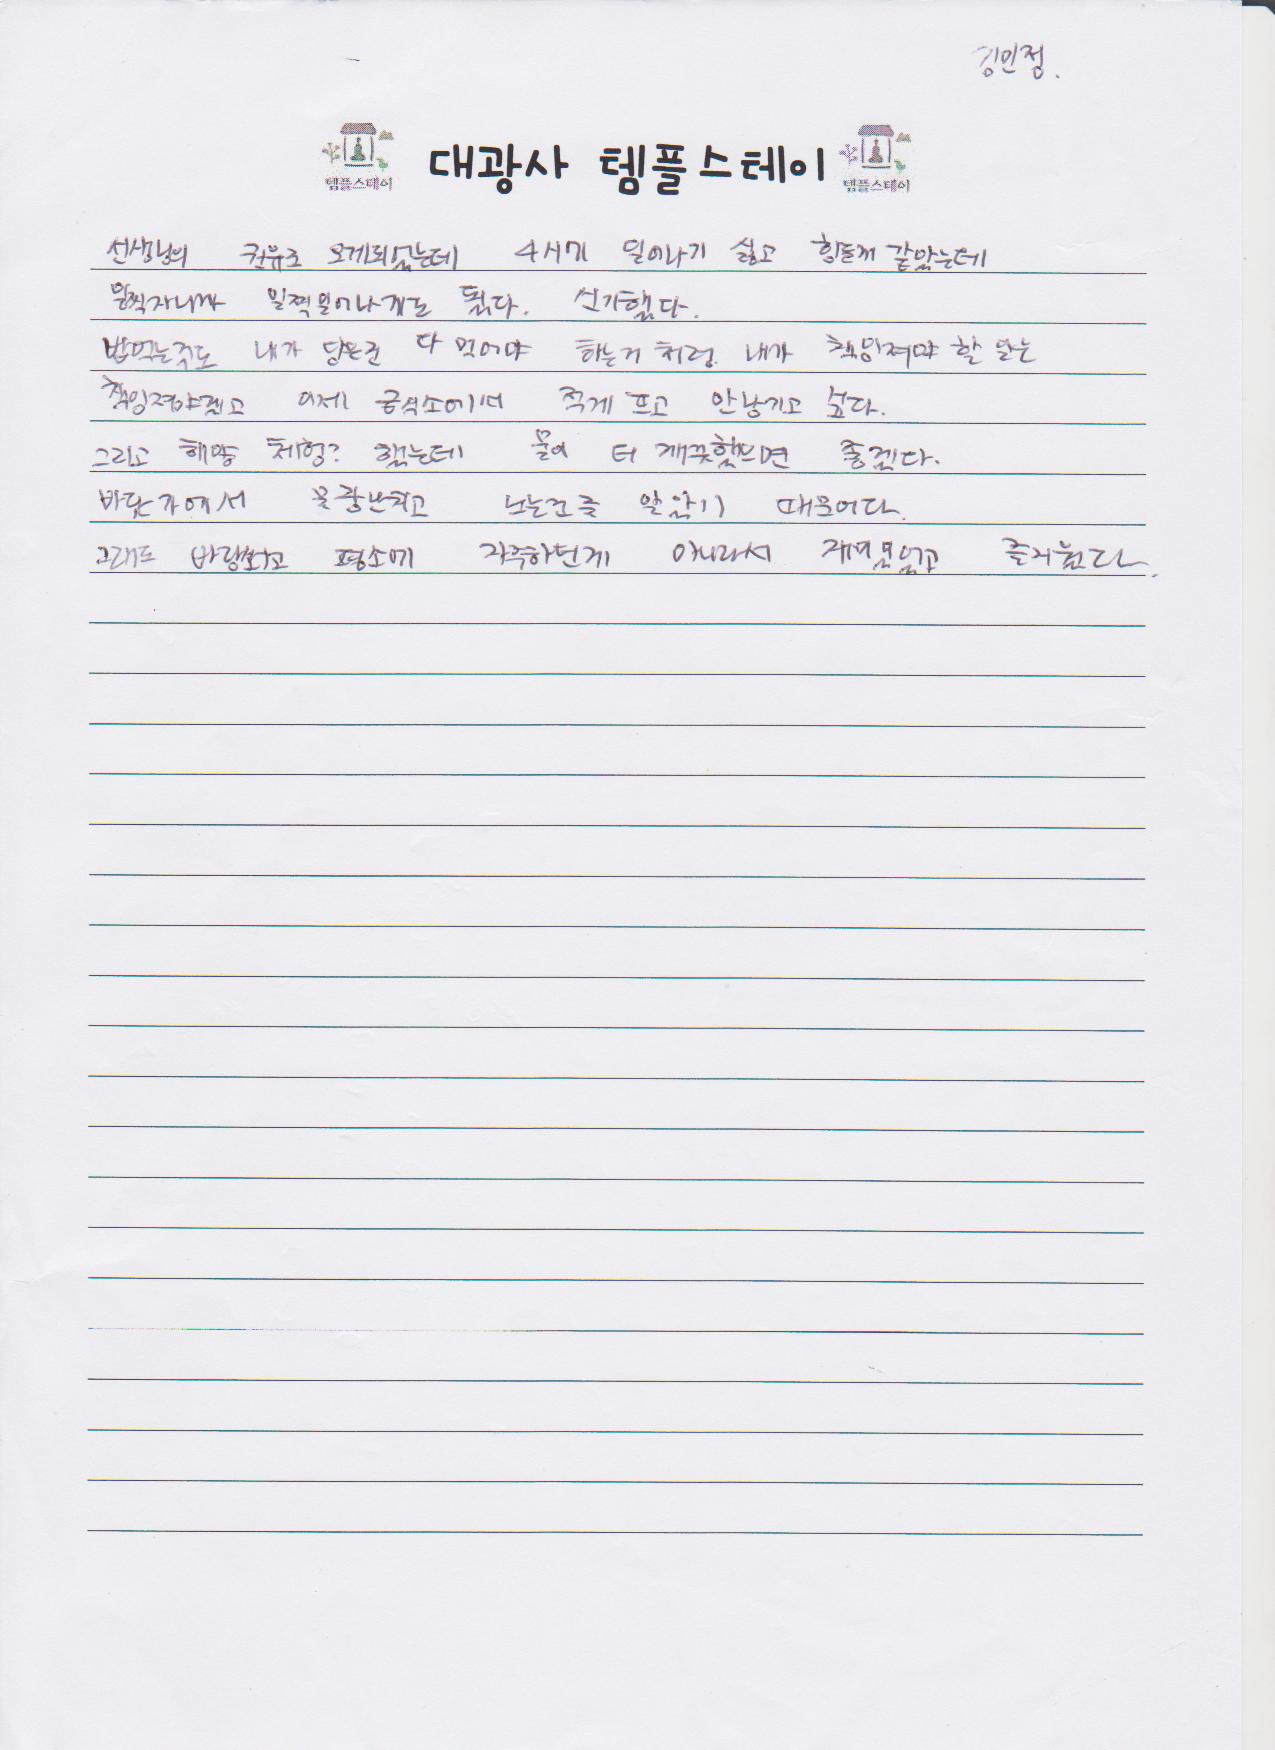 김민정.
템플스테이 대광사 템플스테이 템플스테이
선생님의 권유로 오게되었는데 4시에 일어나기 싫고 힘들꺼 같았는데
일찍자니까 일찍일어나게는 됬다. 신기했다.
밥먹는것도 내가 담은건 다 먹어야 하는거 처럼. 내가 책임져야 할 일는
책임져야겠고 이제 급식소에서 적게 프고 안남기고 싶다.
그리고 해양 체험? 했는데 물이 더 깨끗했으면 좋겠다.
바닷가에서 물장난치고 노는건줄 알았기 때문이다.
그래도 바람쐬고 평소에 자주하던게 아니라서 재미있었고 즐거웠다.